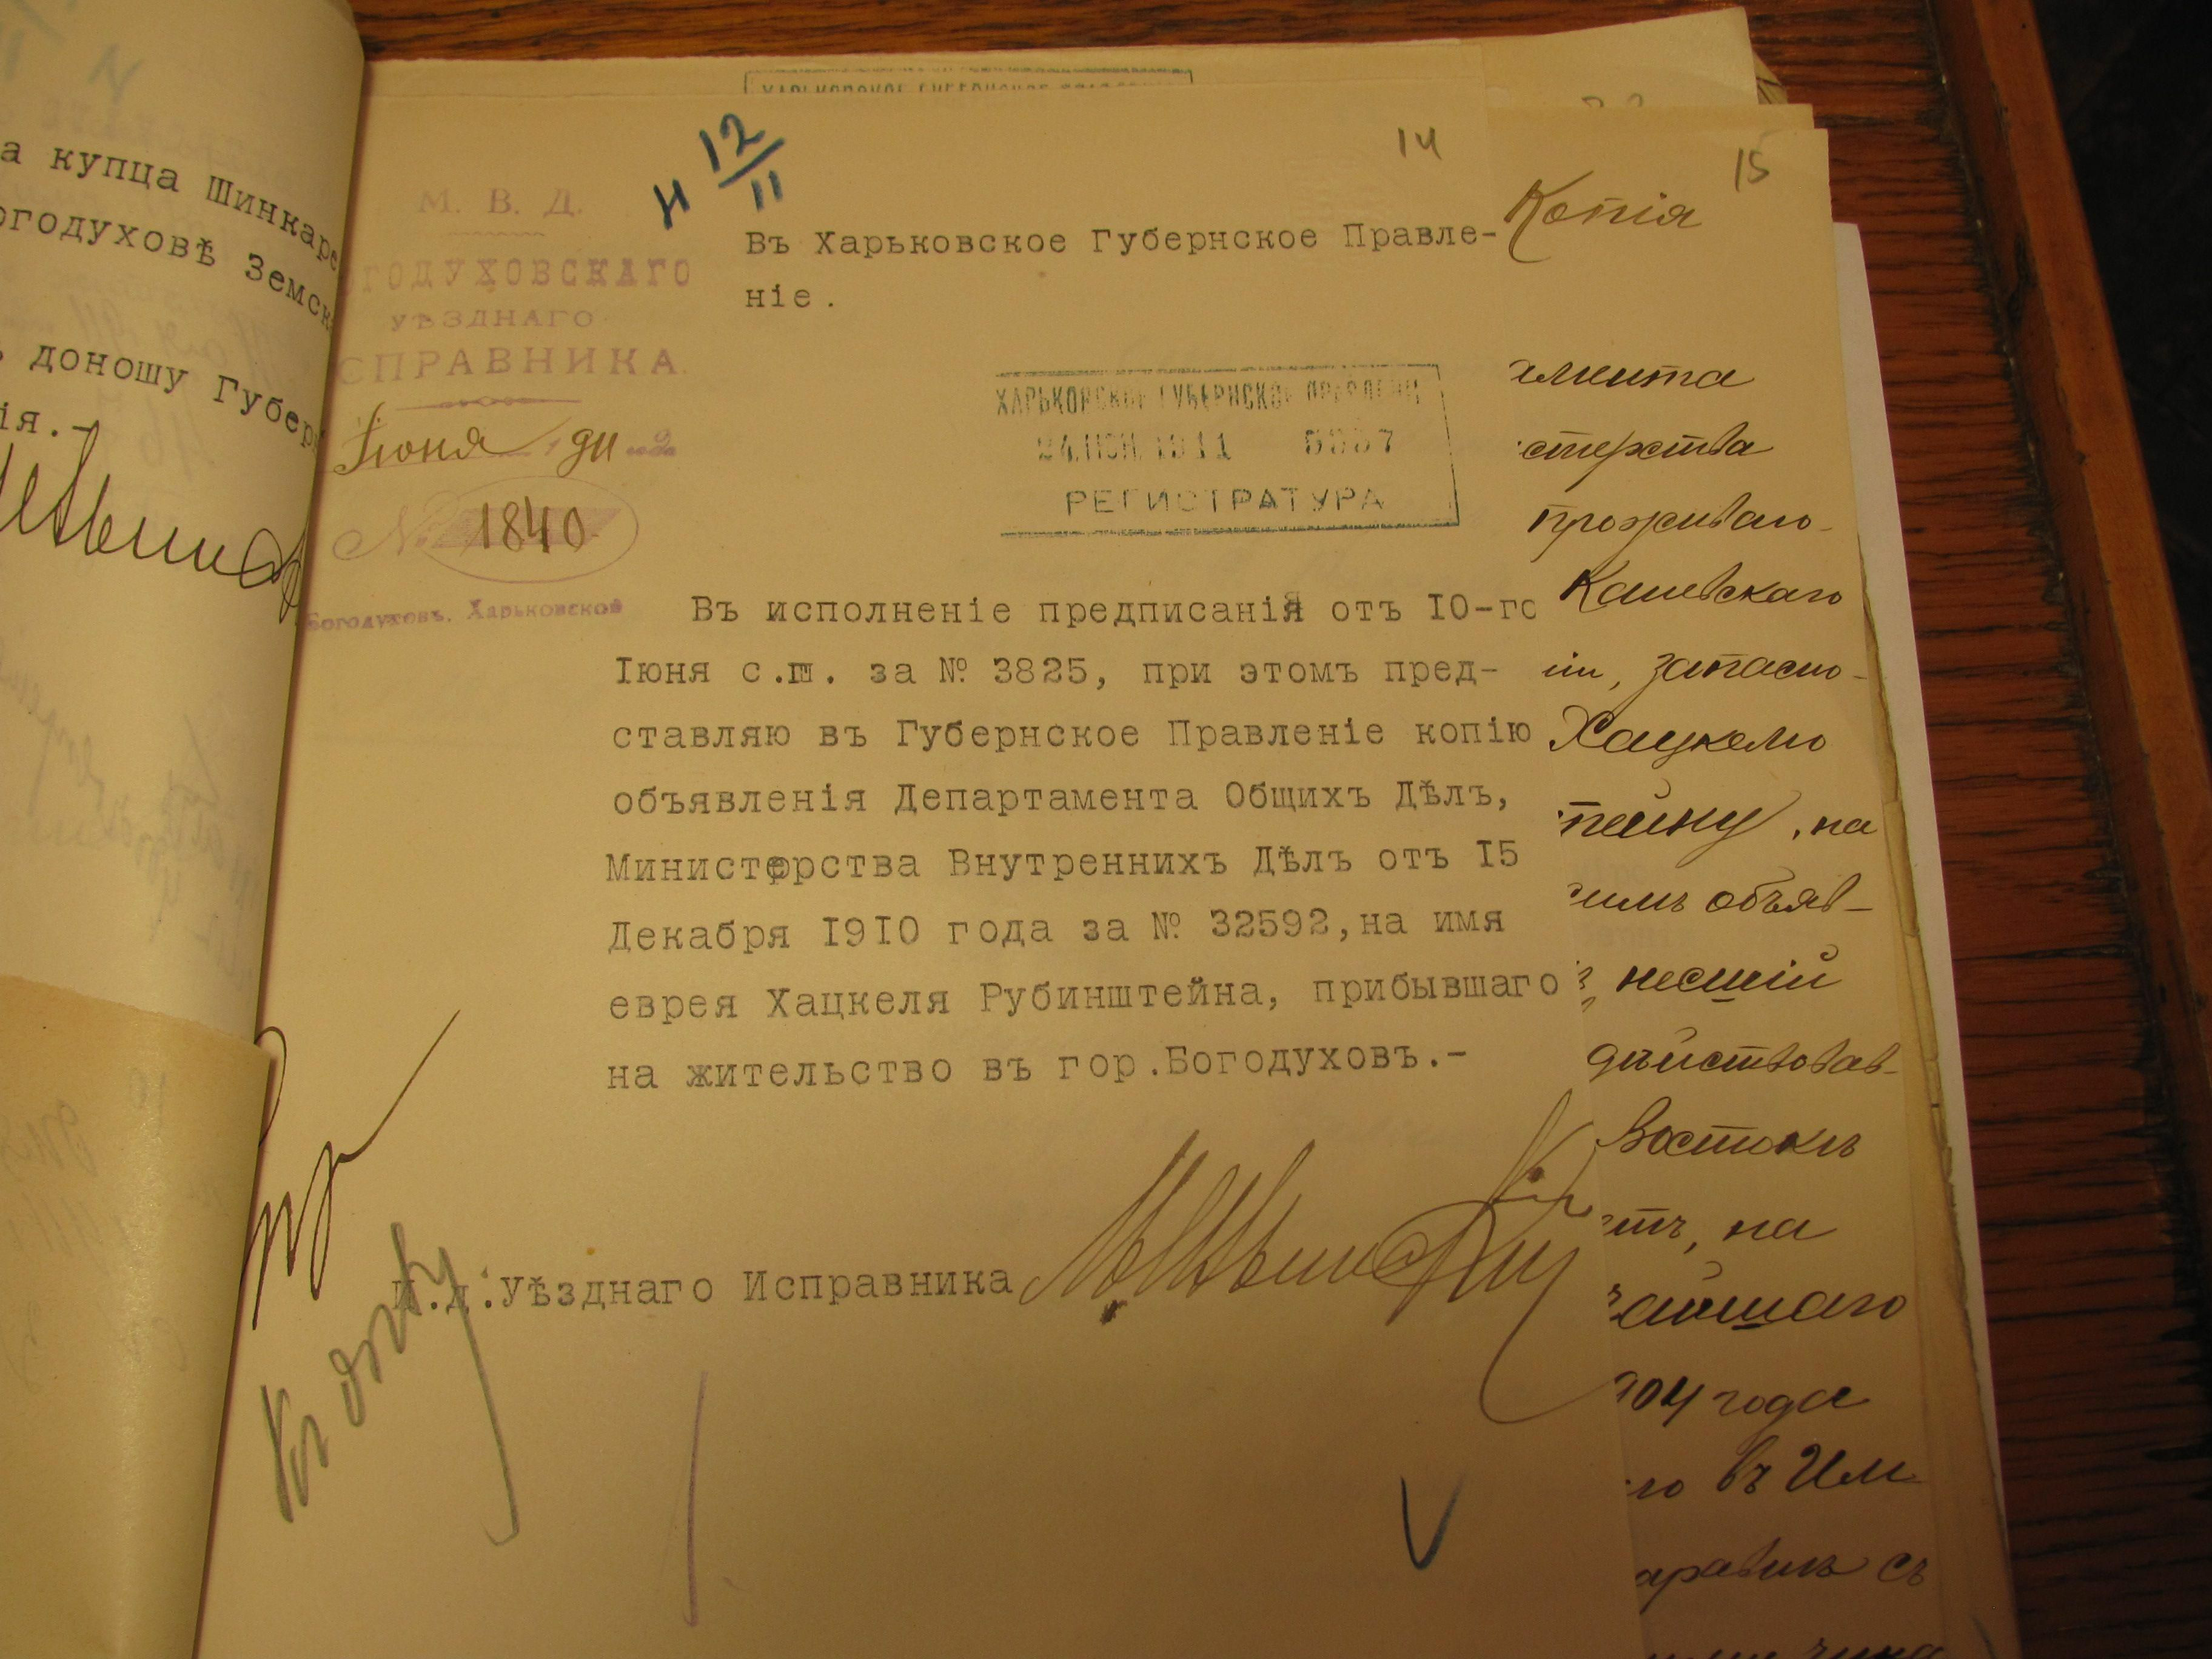 а купца Шинкаре
огодуховѣ Земск
доношу Губер
ія.-
ХАРЬКОВСКОЕ ГУБЕРНСКОЕ
12/11
14
М. В. Д.
ГОДУХОВСКАГО
УѢЗДНАГО
СПРАВНИКА.
Іюня 1911 года
№ 1840
Богодуховъ, Харьковской
Въ Харьковское Губернское Правле-
ніе.
ХАРЬКОВСКОЕ ГУБЕРНСКОЕ ПРАВЛЕНИЕ
24.ІЮН.1911
РЕГИСТРАТУРА
Въ исполненіе предписанія отъ I0-го
Іюня с.г. за № 3825, при этомъ пред-
ставляю въ Губернское Правленіе копію
объявленія Департамента Общихъ Дѣлъ,
Министерства Внутреннихъ Дѣлъ отъ I5
Декабря I9I0 года за № 32592,на имя
еврея Хацкеля Рубинштейна, прибывшаго
на жительство въ гор.Богодуховъ.-
И.д.Уѣзднаго Исправника
15
Копія
амента
стерства
проживаю-
Кашевскаго
іи, запасно-
Хацкелю
тейну, на
симъ объяв-
несшій
дѣйствовав-
Востокѣ
етъ, на
айшаго
904 года
го въ Им
аравнѣ съ